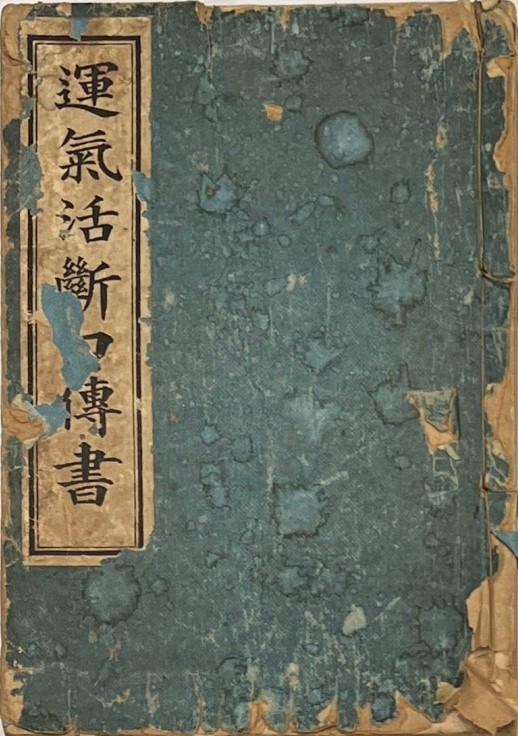 運氣活斷傳書